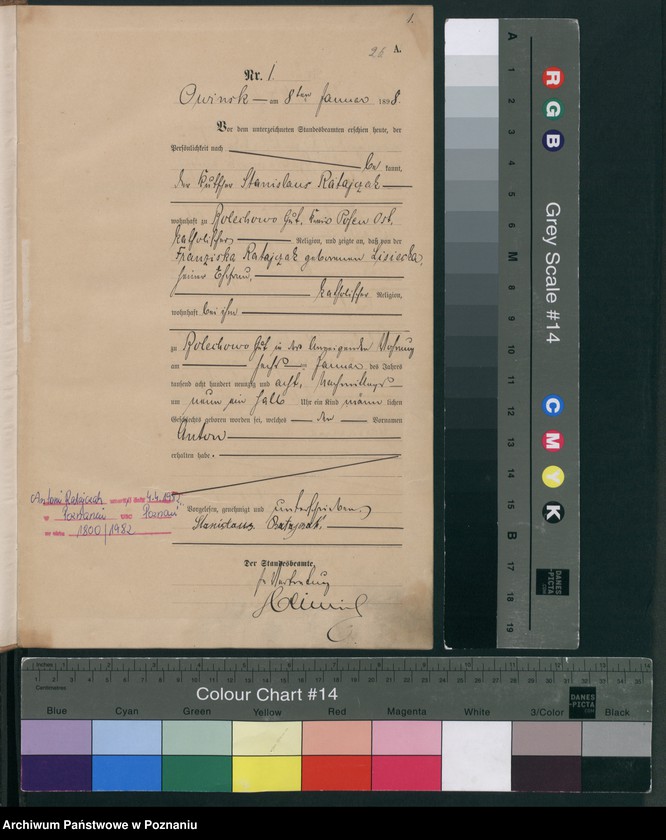 1.
26 A.
Nr. 1
Owinsk — am 8ten Januar 1898.
Vor dem unterzeichneten Standesbeamten erschien heute, der
Persönlichkeit nach
be kannt,
der Kutscher Stanislaus Ratajczak
wohnhaft zu Bolechowo Gut, Kreis Posen Ost,
katholischer Religion, und zeigte an, daß von der
Franziska Ratajczak geborenen Lisiecka,
seiner Ehefrau,
katholischer Religion,
wohnhaft bei ihm
zu Bolechowo Gut in der Anzeigenden Wohnung
am sechsten Januar des Jahres
tausend acht hundert neunzig und acht, Nachmittags
um neun ein halb Uhr ein Kind männ lichen
Geschlechts geboren worden sei, welches den Vornamen
Anton
erhalten habe.
Vorgelesen, genehmigt und unterschrieben.
Stanislaus Ratajczak.
Der Standesbeamte,
In Vertretung
Antoni Ratajczak zmarł dnia 4.4.1982
w Poznaniu USC Poznań
nr aktu 1800/1982
A 1 2 3 4 5 6 M 8 9 10 11 12 13 14 15 B 17 18 19
R G B
Grey Scale #14
C M Y K
DANES
-PICTA
Inches 1 2 3 4 5 6 7 8 9 10 11 12 13 14
Centimetres
Colour Chart #14
DANES
-PICTA
.COM
Blue Cyan Green Yellow Red Magenta White 3/Color Black
Archiwum Państwowe w Poznaniu